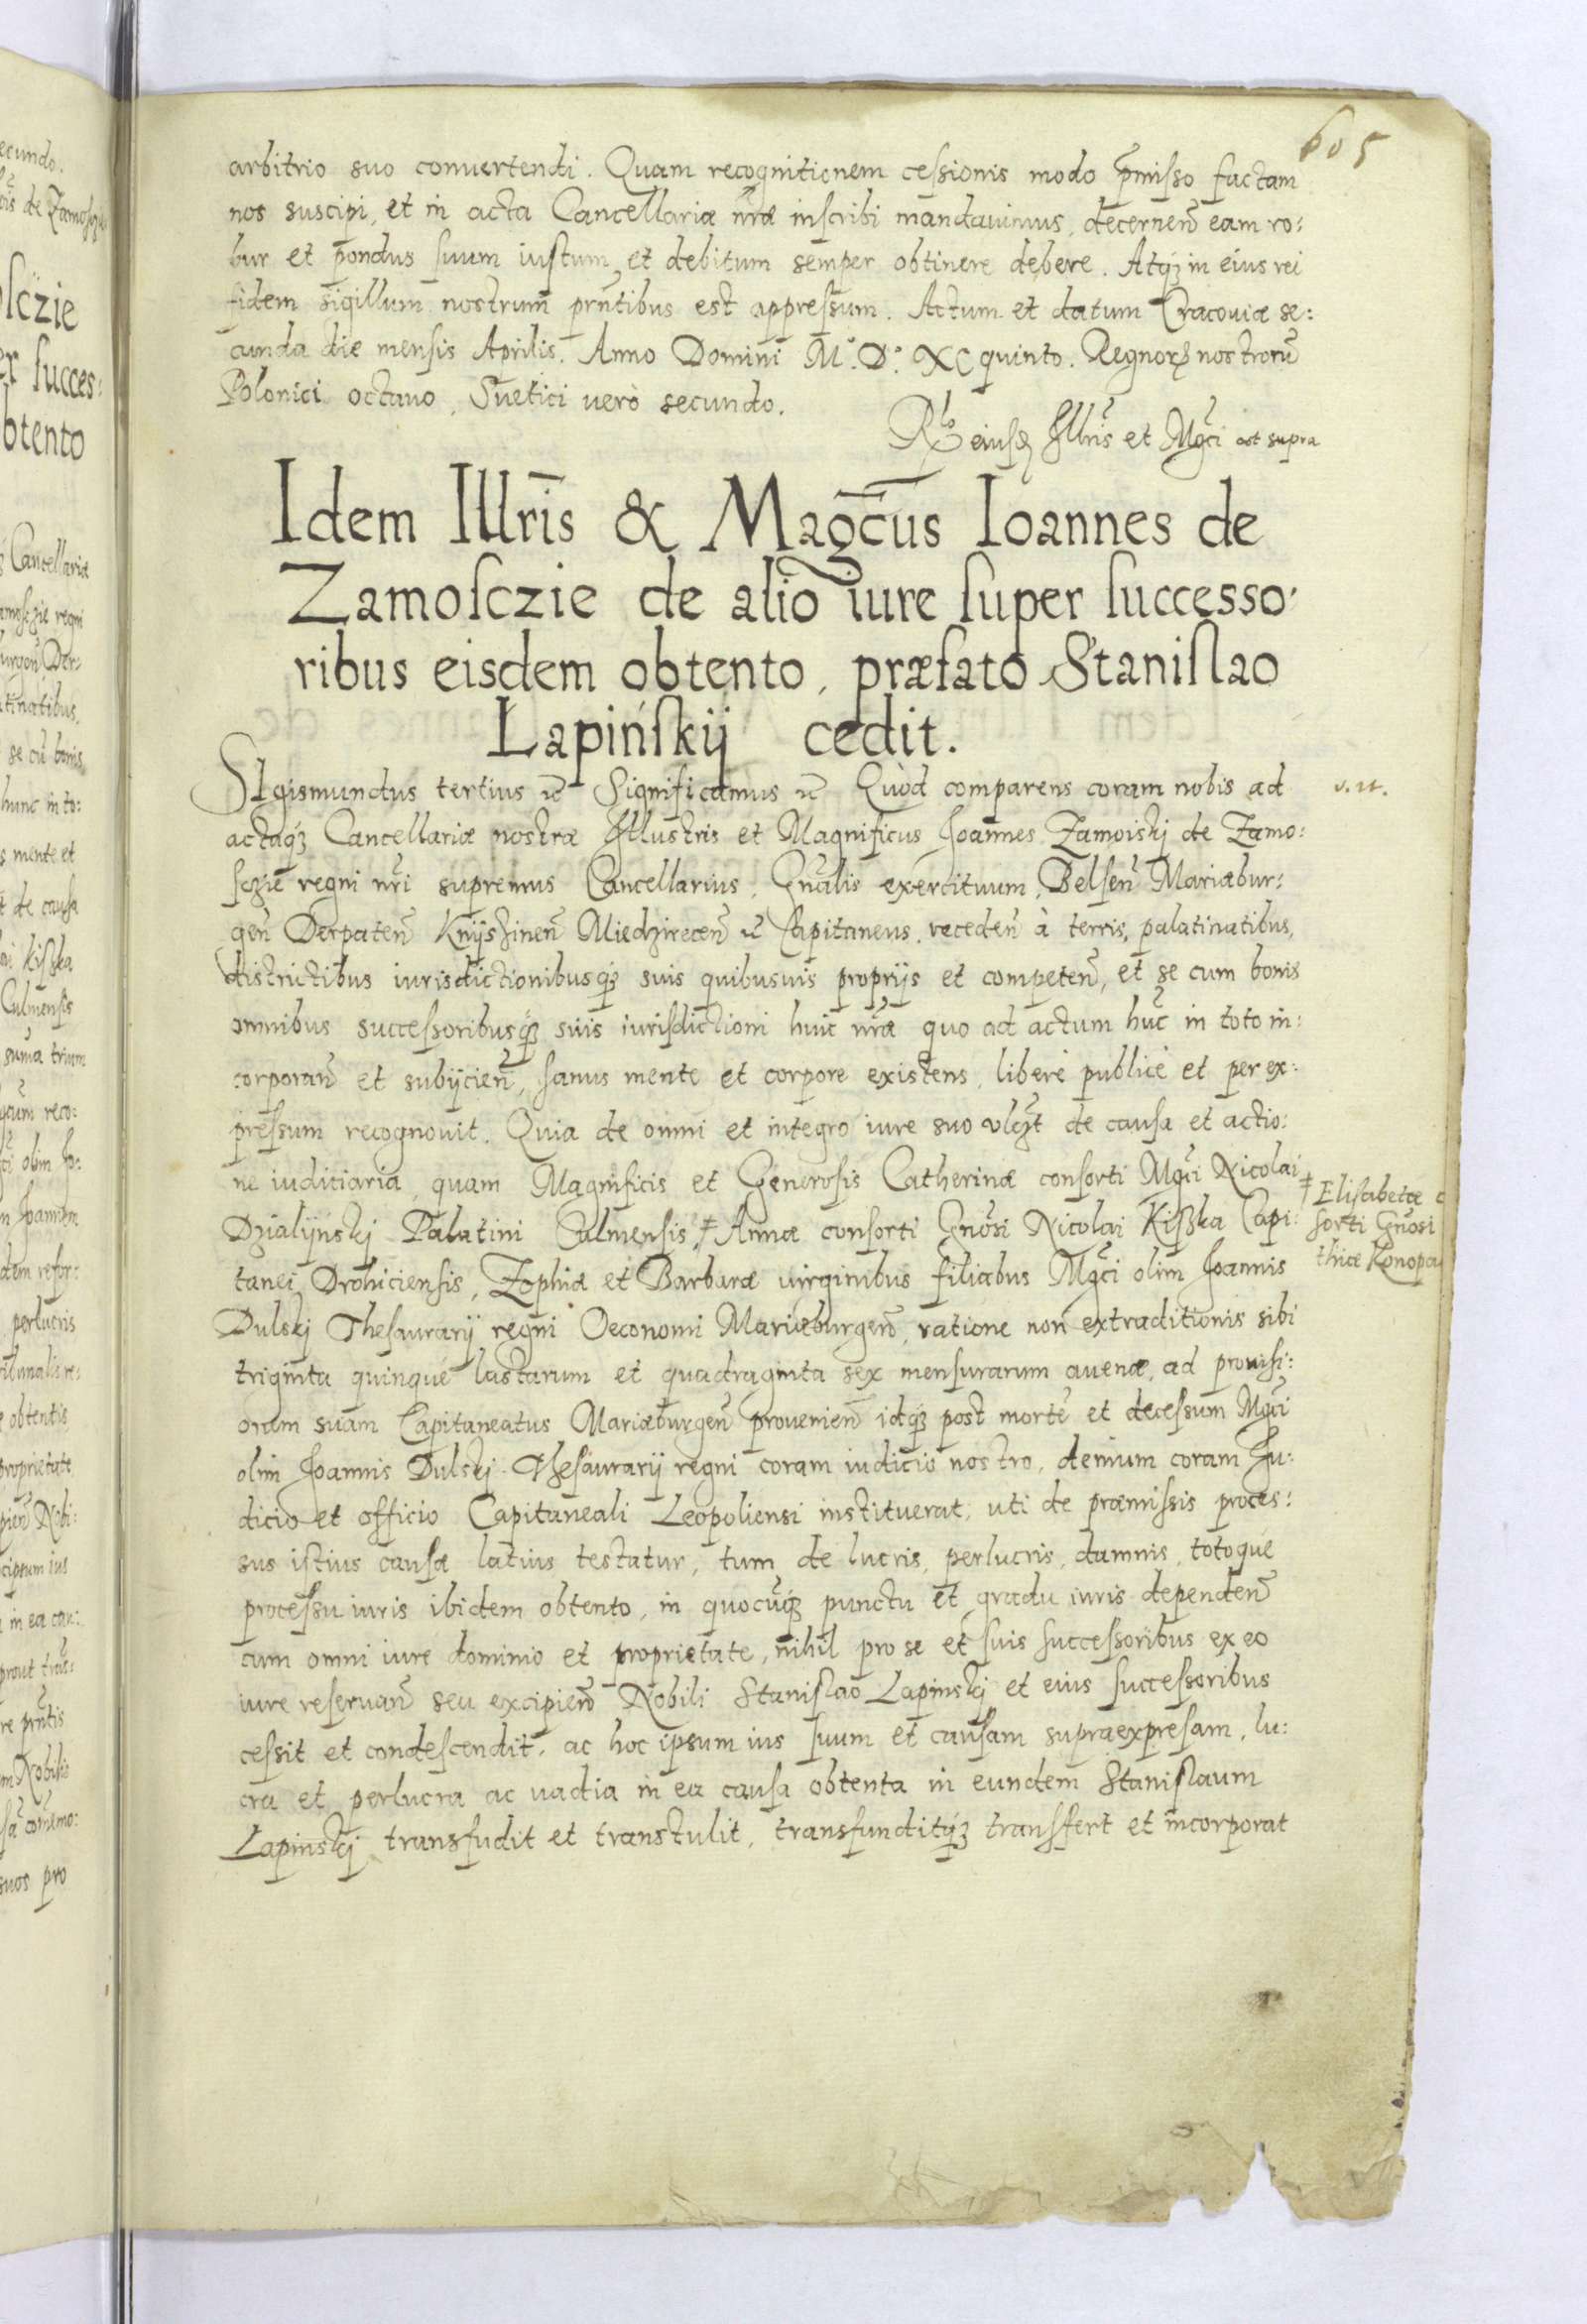 605
arbitrio suo conuertendi. Quam recognitionem cessionis modo p̄misso factam
nos suscipi, et in acta Cancellariæ nr̃æ inscribi mandauimus, decernen̄ eam ro:
bur et pondus suum iustum et debitum semper obtinere debere. Atqꝫ in eius rei
fidem sigillum nostrum pr̃ntibus est appressum. Actum et datum Cracouiæ se:
cunda die mensis Aprilis. Anno Domini M.° D.° XC quinto. Regnorꝫ nostrorū
Polonici octauo, Suetici verò secundo.
Rlo eiusdꝫ Illr̃is et Mgc̃i ut supra
Idem Illr̄is & Magc̄us Ioannes de
Zamosczie de alio iure super successo:
ribus eisdem obtento, præfato Stanislao
Lapińskij cedit.
SIgismundus tertius ꝛc̃ Significamus ꝛc̃ Quòd comparens coram nobis ad
actaqꝫ Cancellariæ nostræ Illustris et Magnificus Joannes Zamoiskj de Zamo:
sczie regni nr̃i supremus Cancellarius, Gnãlis exercituum, Belsen̄ Mariæbur:
gen̄ Derpaten̄ Knijszinen̄ Miedzirecen̄ ꝛc̃ Capitaneus, receden̄ à terris, palatinatibus,
districtibus iurisdictionibusqꝫ suis quibusuis proprijs et competen̄, et se cum bonis
omnibus successoribusqꝫ suis iurisdictioni huic nr̃æ quo ad actum hũc in toto in:
corporan̄ et subijcien̄, sanus mente et corpore existens, liberè publicè et per ex:
pressum recognouit. Quia de omni et integro iure suo vlgꝫt de causa et actio:
ne iudiciaria, quam Magnificis et Generosis Catherinæ consorti Mgc̃i Nicolai
Dzialijńskj Palatini Culmensis, ‡ Annæ consorti Gnõsi Nicolai Kiszka Capi:
tanei Drohiciensis, Zophiæ et Barbaræ virginibus filiabus Mgc̃i olim Joannis
Dulskj Thesaurarij regni Oeconomi Mariæburgen̄, ratione non extraditionis sibi
triginta quinque lastarum et quadraginta sex mensurarum auenæ, ad prouisi:
onem suam Capitaneatus Mariæburgen̄ prouenien̄ idqꝫ post mortē et decessum Mgc̃i
olim Joannis Dulskj Thesaurarij regni coram iudicio nostro, demum coram Ju:
dicio et officio Capitaneali Leopoliensi instituerat, uti de præmissis proces:
sus istius causæ latius testatur, tum de lucris, perlucris, damnis, totoque
processu iuris ibidem obtento, in quocūqꝫ punctu et gradu iuris dependen̄
cum omni iure dominio et proprietate, nihil pro se et suis successoribus ex eo
iure reseruan̄ seu excipien̄ Nobili Stanislao Lapinskj et eius successoribus
cessit et condescendit, ac hoc ipsum ius suum et causam supraexpresam, lu:
cra et perlucra ac vadia in ea causa obtenta in eundem Stanislaum
Lapinskj transfudit et transtulit, transfunditqꝫ transfert et incorporat
‡ Elisabetæ
sorti Gnõsi
thiæ Konopa